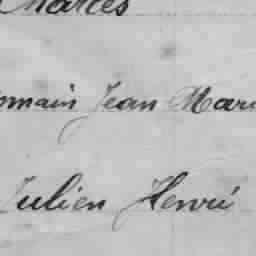 Charles
omain Jean Mari
Julien Henri